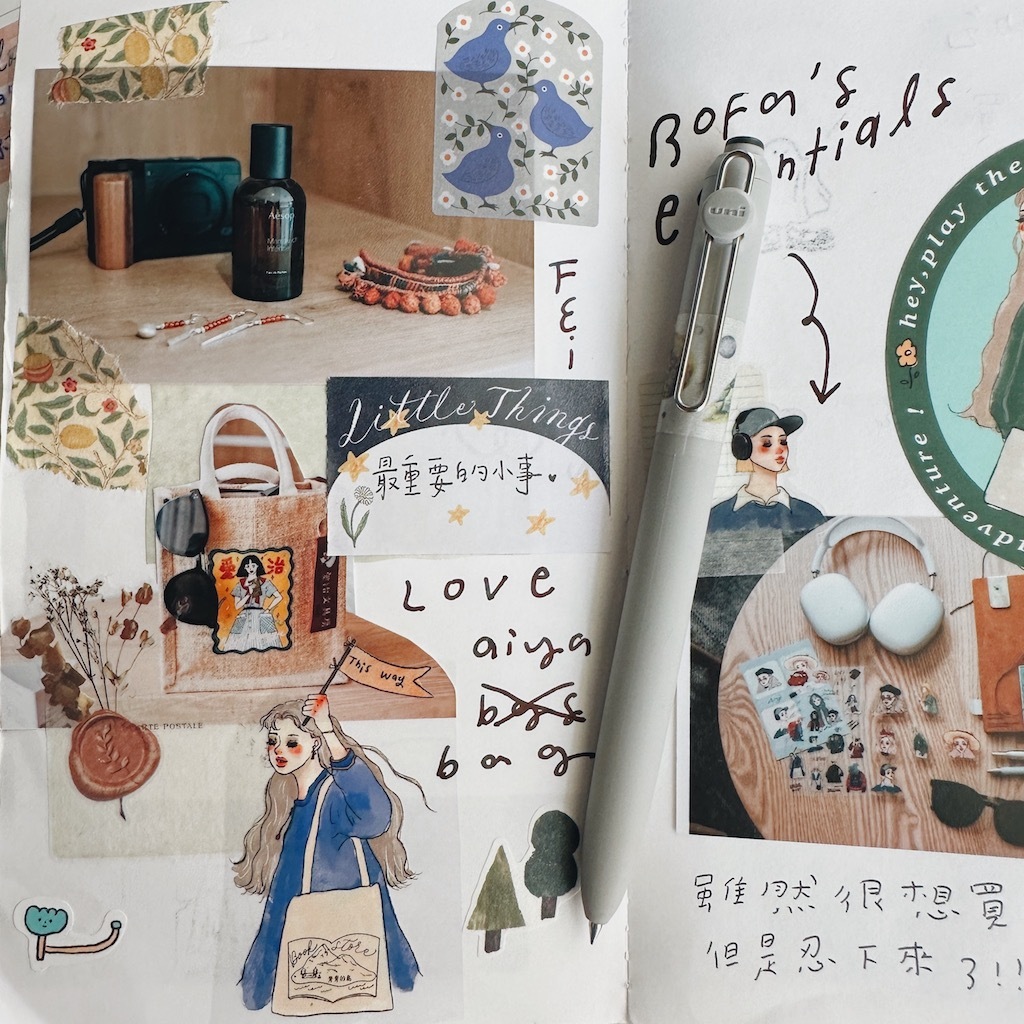 Aēsop
Fei
Little Things
最重要的小事
愛治
LOVE
aiya
bag
This way
CARTE POSTALE
Book Store
Bofa's
uni
hey, play the
adventure!
雖然很想買
但是忍下來了!!